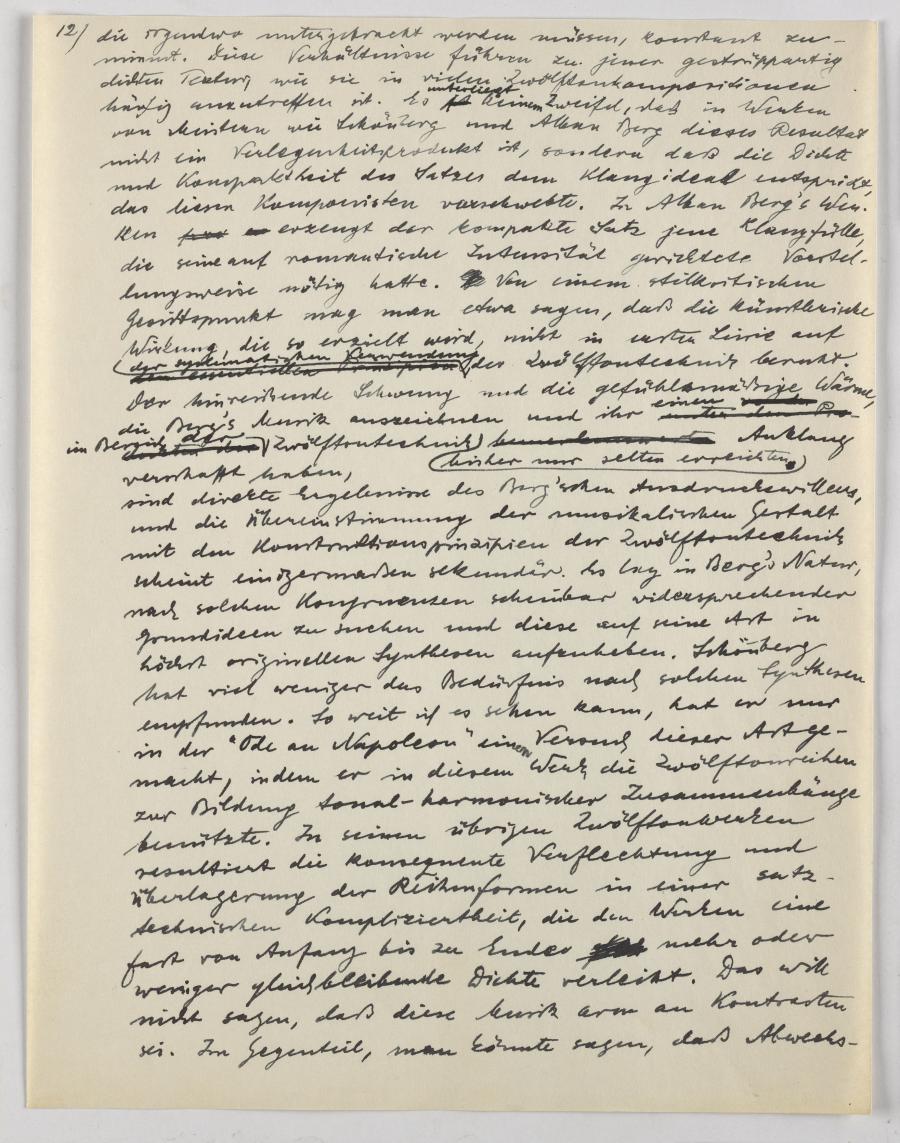 12/ die irgendwo untergebracht werden müssen, konstant zu-
nimmt. Diese Verhältnisse führen zu jener gestrüppartig
dichten Textur, wie sie in vielen Zwölftonkompositionen
häufig anzutreffen ist. Es unterliegt keinem Zweifel, daß in Werken
von Meistern wie Schönberg und Alban Berg dieses Resultat
nicht ein Verlegenheitsprodukt ist, sondern daß die Dichte
und Kompaktheit des Satzes dem Klangideal entspricht,
das diesen Komponisten vorschwebte. In Alban Berg's Wer-
ken erzeugt der kompakte Satz jene Klangfülle,
die seine auf romantische Intensität gerichtete Vorstel-
lungsweise nötig hatte. Von einem stilkritischen
Gesichtspunkt mag man etwa sagen, daß die künstlerische
Wirkung, die so erzielt wird, nicht in erster Linie auf
der systematischen Verwendung
der Zwölftontechnik beruht.
Der hinreißende Schwung und die gefühlsmäßige Wärme,
die Berg's Musik auszeichnen und ihr einen
im Bereich der Zwölftontechnik Anklang
verschafft haben, bisher nur selten erreichten
sind direkte Ergebnisse des Berg'schen Ausdruckswillens,
und die Übereinstimmung der musikalischen Gestalt
mit den Konstruktionsprinzipien der Zwölftontechnik
scheint einigermaßen sekundär. Es lag in Berg's Natur,
nach solchen Kongruenzen scheinbar widersprechender
Grundideen zu suchen und diese auf seine Art in
höchst originellen Synthesen aufzuheben. Schönberg
hat viel weniger das Bedürfnis nach solchen Synthesen
empfunden. So weit ich es sehen kann, hat er nur
in der "Ode an Napoleon" einen Versuch dieser Art ge-
macht, indem er in diesem Werk die Zwölftonreihen
zur Bildung tonal-harmonischer Zusammenhänge
benützte. In seinen übrigen Zwölftonwerken
resultiert die konsequente Verflechtung und
Überlagerung der Reihenformen in einer satz-
technischen Kompliziertheit, die den Werken eine
fast von Anfang bis zu Ende mehr oder
weniger gleichbleibende Dichte verleiht. Das will
nicht sagen, daß diese Musik arm an Kontrasten
sei. Im Gegenteil, man könnte sagen, daß Abwechs-